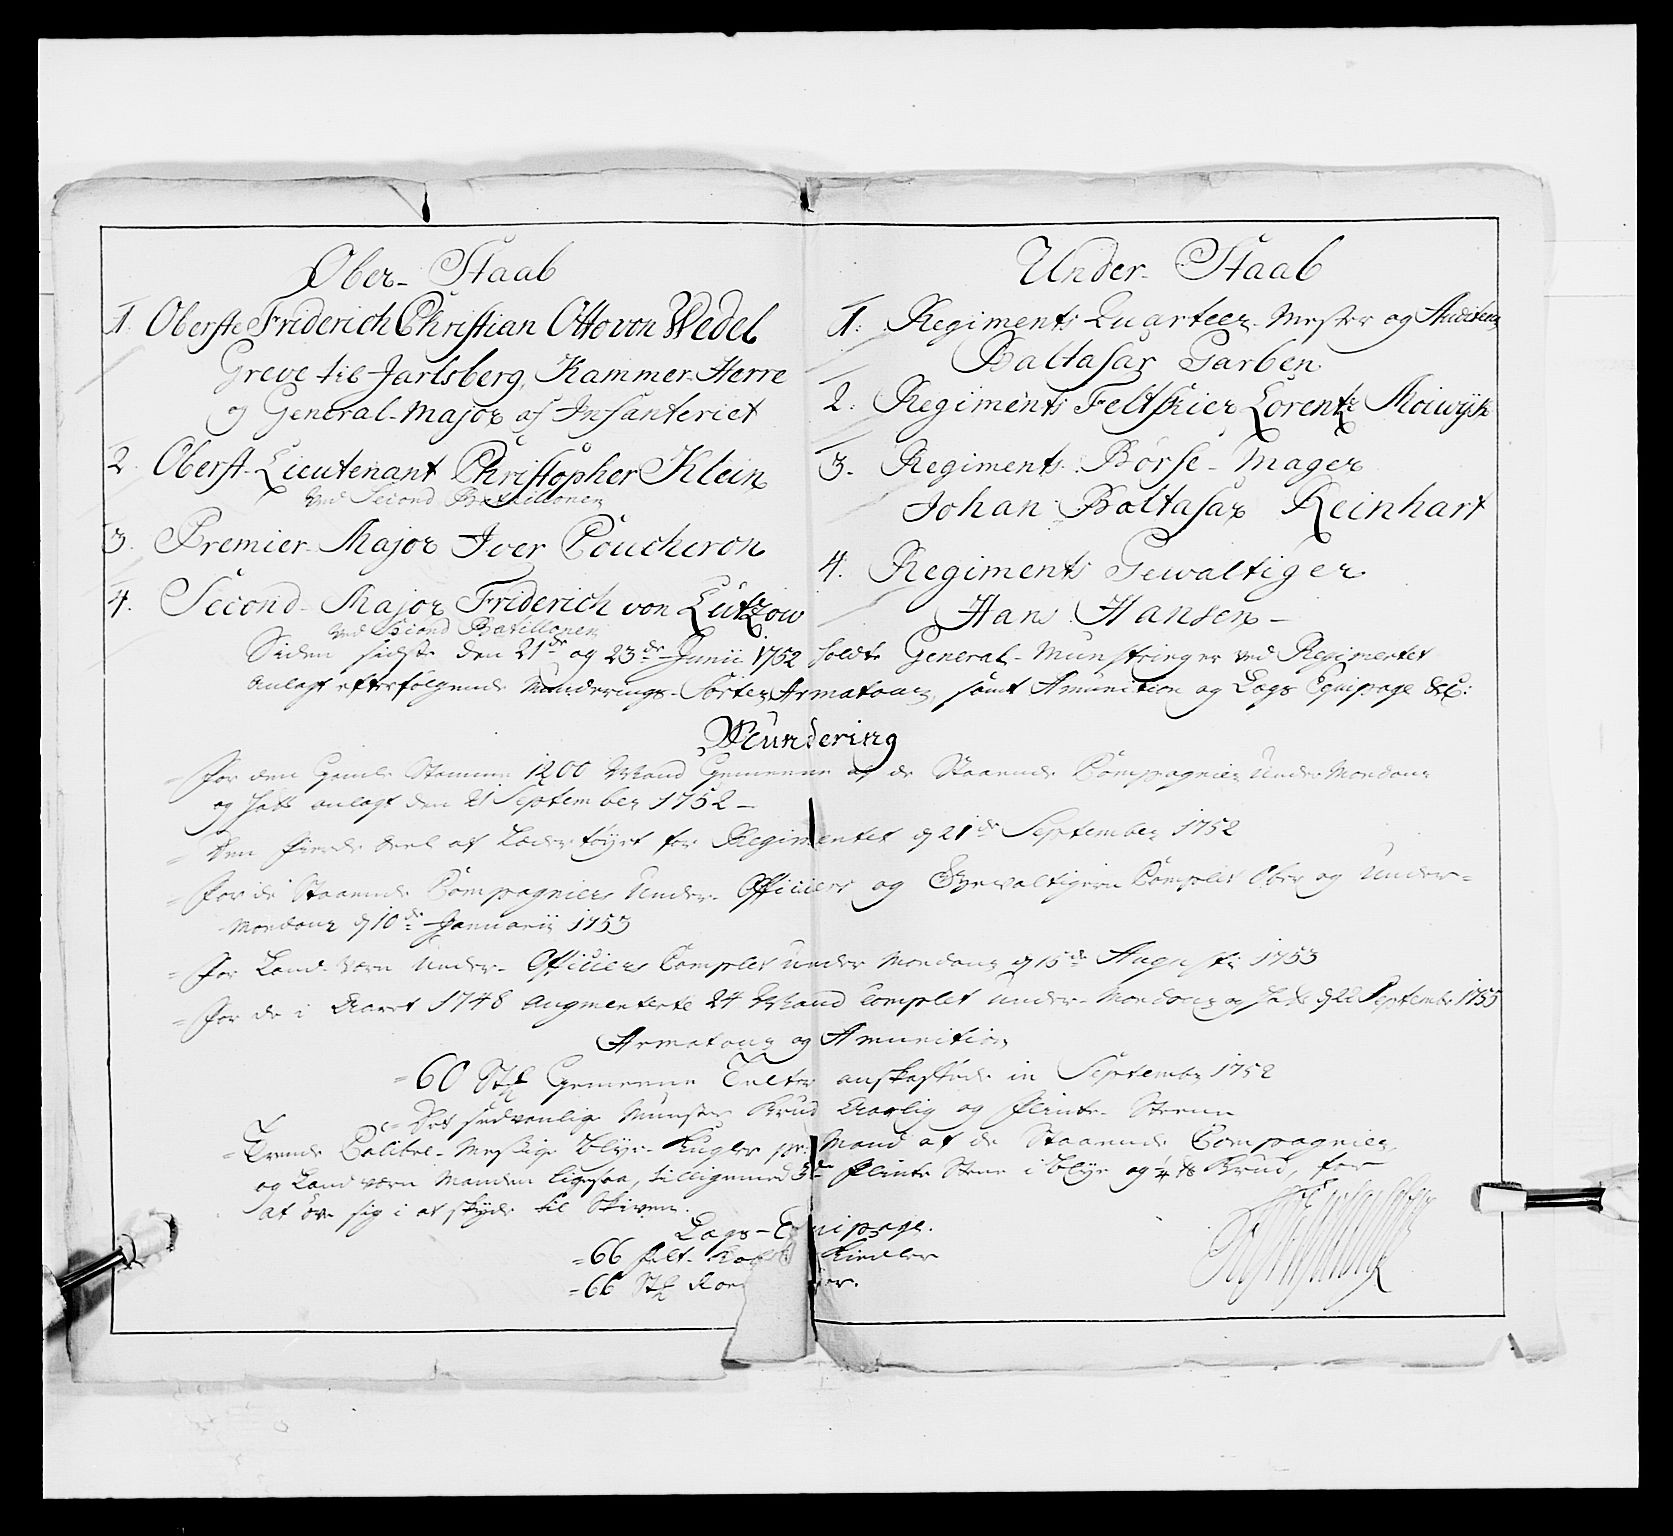 Ober-Staab
1. Oberste Friderich Christian Otto von Wedel
Greve til Jarlsberg, Kammer-Herre
og General-Major af Infanteriet
2. Oberst-Lieutenant Christopher Klein
ved Second Batallionen
3. Premier-Major Iver Coucheron
4. Second-Major Friderich von Lützow
ved Second Batillonen
Under-Staab
1. Regiments Quarteer-Mester og Auditeur
Baltasar Garben
2. Regiments Feltskier Lorentz
3. Regiments Börse-Mager
Johan Baltasar Reinhart
4. Regiments Gewaltiger
Hans Hansen
Siden sidste den 21de og 23de Junii 1752 holdte General-Munstringer ved Regimentet
anlagt efterfölgende Munderings-Sorter, Armatour, samt Amunition og Lags Equipage &c:
Mundering
= For den Gamle Stamme 1200 Mand Gemeene af de Staaende Compagnier Under Mondour
og Hatt anlagt den 21 September 1752
= Den fierde Deel af Lædertöyet for Regimentet d 21de September 1752
= For de Staaende Compagniers Under-Officiers og Gevaltigeren Complet Ober og Under-
Mondour d 10de Januarii 1753
= For Land-Værn Under-Officiers Complet Under Mondour d 15de Augusti 1753
= For de i Aaret 1748 augmenterte 24 Mand Complet Under-Mondour og Hatt September 1755
Armatour og Amunition
= 60 Stk Gemeene Telter anskaffede in Septembr 1752
= Det sedvanlige Munster Krud Aarlig og Flinte-Steene
= Trende Calibre-Messige Blye-Kugler pr Mand af de Staaende Compagnier,
og Land værn Manden ligesaa, tilligemed 3de Flinte Steene i Blye og 1/4 ℔ Krud, for
at öve sig i at skyde til Skiven.
Lags-Equipage.
= 66 Felt-Kiedler
= 66 Stk